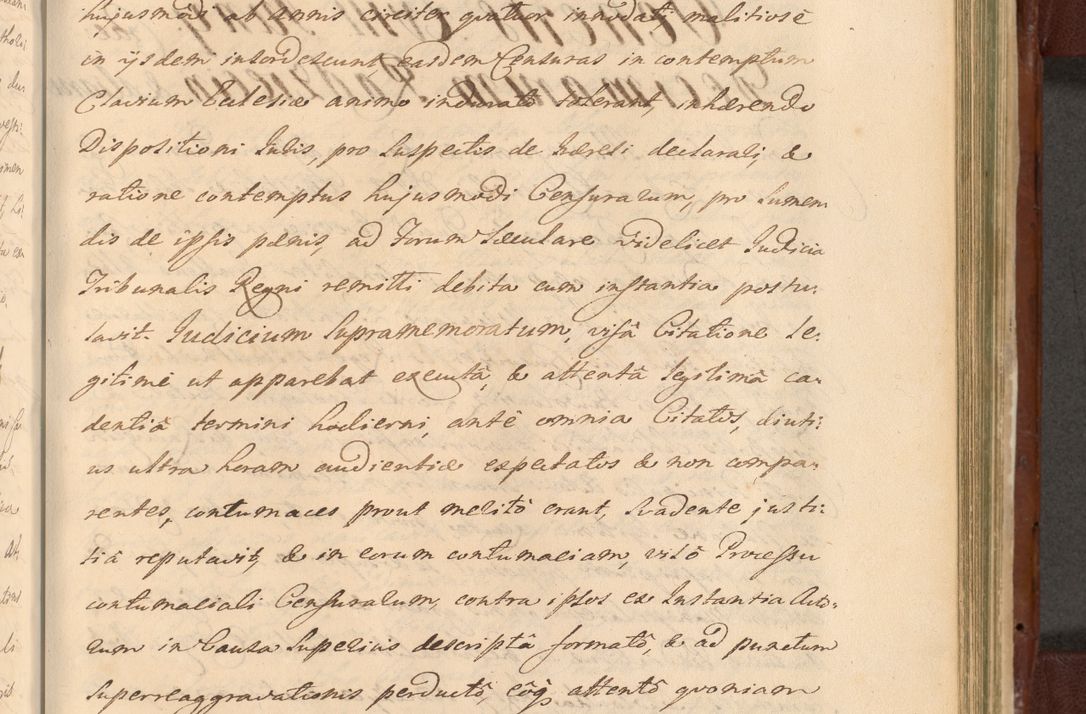 hujusmodi ab annis circiter quatuor innodati malitiosè
in ijsdem insordescunt, easdem Censuras in contemptum
Clavium Ecclesiæ animo indurato tolerant, inhærendo
Dispositioni Iuris, pro suspectis de Hæresi declarari, &
ratione contemptus hujusmodi Censurarum, pro sumen
dis de ipsis pænis, ad Forum Sæculare videlicet Iudicia
Tribunalis Regni remitti debita cum instantia postu:
lavit. Iudicium supramemoratum, visâ Citatione le:
gitimè ut apparebat executâ, & attentâ legitimâ ca:
dentiâ termini hodierni, antè omnia Citatos, diuti:
us ultra horam audientiæ expectatos & non compa:
rentes, contumaces prout meritò erant, suadente justi:
tiâ reputavit, & in eorum contumaciam, visô Processu
contumaciali Censurarum, contra ipsos ex Instantia Acto:
rum in Causa superius descriptâ formatô, & ad punctum
superreaggravationis perductô, eôq attentô quoniam